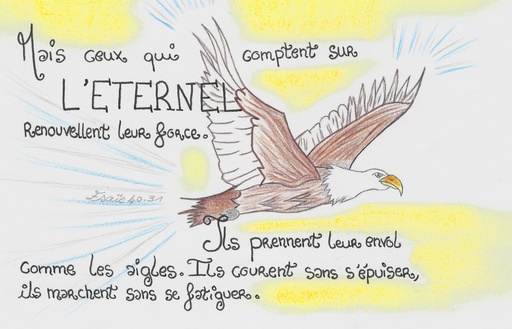 Mais ceux qui comptent sur
L'ETERNEL
Renouvellent leur force.
Isaïe 40:31
Ils prennent leur envol
comme les aigles. Ils courent sans s'épuiser,
ils marchent sans se fatiguer.